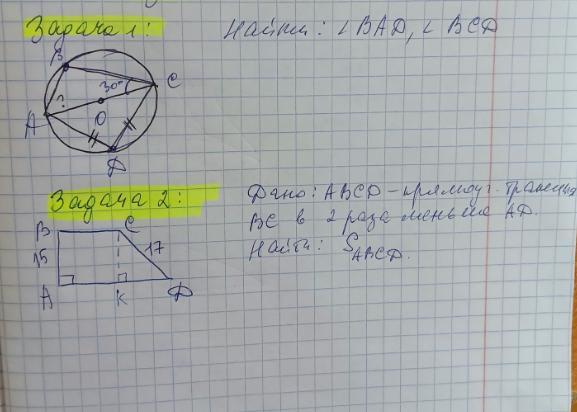 Задача 1:
Найти: ∠BAD, ∠BCD
B
30°
C
?
A
O
D
Задача 2:
Дано: ABCD - прямоуг. трапеция
BC в 2 раза меньше AD.
Найти: S ABCD.
B
C
15
17
A
K
D